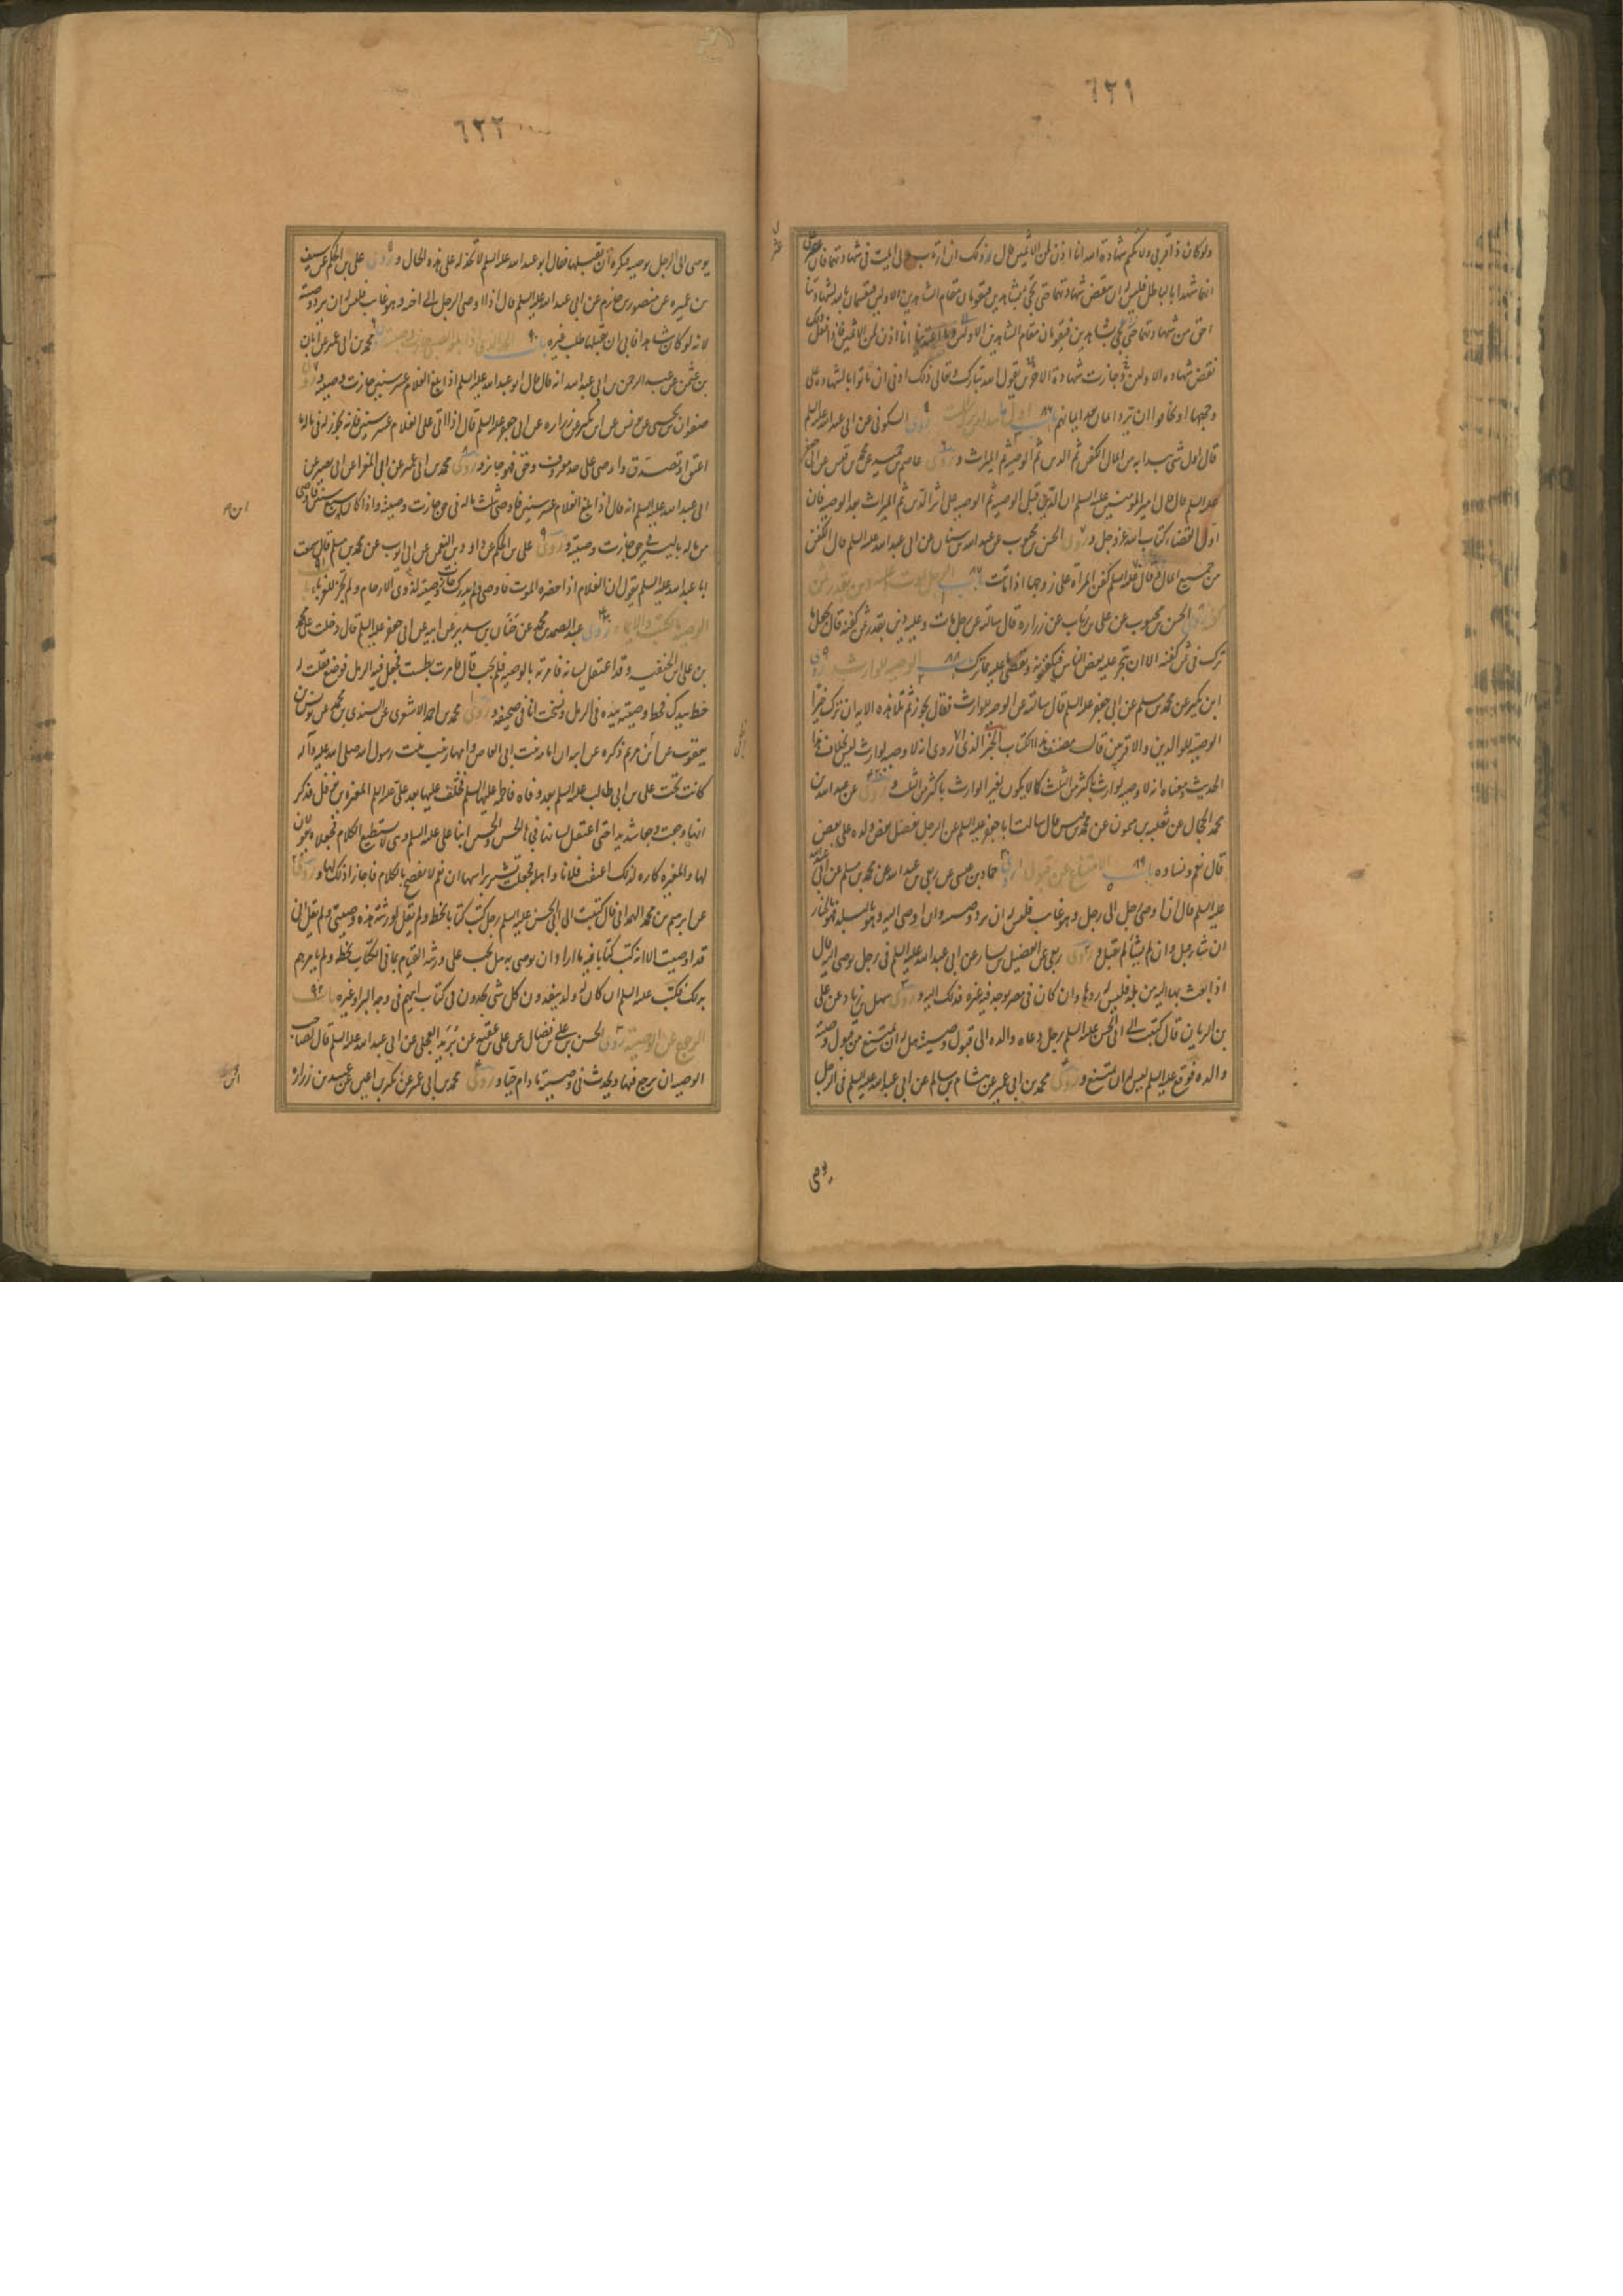 ٦٢١
ولو كان ذا قربى ولا نكتم شهادة الله انا اذن لمن الآثمين قال وذلك ان ارتاب ولى الميت فى شهادتهما فان عثر على
انهما شهدا بالباطل فليس له ان ينقض شهادتهما حتى يجئ بشاهدين فيقومان مقام الشاهدين الاولين فيقسمان بالله لشهادتنا
احق من شهادتهما وما اعتدينا انا اذن لمن الظالمين فاذا فعل ذلك
نقض شهادة الاولين وجازت شهادة الآخرين يقول الله تبارك وتعالى ذلك ادنى ان ياتوا بالشهادة على
وجهها او يخافوا ان ترد ايمان بعد ايمانهم باب اول ما يبدا به من تركة الميت روى السكونى عن ابى عبد الله عليه السلم
قال اول شى يبدا به من المال الكفن ثم الدين ثم الوصية ثم الميراث و روى عاصم بن حميد عن محمد بن قيس عن ابى جعفر
عليه السلم قال قال امير المؤمنين عليه السلم ان الدين قبل الوصية ثم الوصية على اثر الدين ثم الميراث بعد الوصية فان
اولى القضاء كتاب الله عز وجل و روى الحسن بن محبوب عن عبد الله بن سنان عن ابى عبد الله عليه السلم قال الكفن
من جميع المال وقال عليه السلم كفن المراة على زوجها اذا ماتت باب الرجل يموت وعليه دين بقدر ثمن
كفنه الحسن بن محبوب عن على بن رئاب عن زرارة قال سالته عن رجل مات وعليه دين بقدر ثمن كفنه قال يجعل ما
ترك فى ثمن كفنه الا ان يتجر عليه بعض الناس فيكفنونه ويقضى ما عليه مما ترك باب الوصية للوارث روى
ابن بكير عن محمد بن مسلم عن ابى جعفر عليه السلم قال سالته عن الوصية للوارث فقال يجوز ثم تلا هذه الاية ان ترك خيرا
الوصية للوالدين والاقربين قال مصنف هذا الكتاب الخبر الذى روى انه لا وصية لوارث ليس بخلاف هذا
الحديث ومعناه انه لا وصية لوارث باكثر من الثلث كما لا يكون لغير الوارث باكثر من الثلث و روى عن عبد الله بن
محمد الحجال عن ثعلبة بن ميمون عن محمد بن قيس قال سالت ابا جعفر عليه السلم عن الرجل يفضل بعض ولده على بعض
قال نعم ونساءه باب الامتناع عن قبول الوصية روى حماد بن عيسى عن ربعى بن عبد الله عن محمد بن مسلم عن ابى عبد الله
عليه السلم قال ان اوصى رجل الى رجل وهو غايب فليس له ان يرد وصيته وان اوصى اليه وهو بالبلد فهو بالخيار
ان شاء قبل وان لم يشا لم يقبل و روى ربعى عن الفضيل بن يسار عن ابى عبد الله عليه السلم فى رجل يوصى اليه قال
اذا بعث بها اليه من بلد فليس له ردها وان كان فى مصر يوجد فيه غيره فذلك اليه و روى سهل بن زياد عن على
بن الريان قال كتبت الى ابى الحسن عليه السلم رجل دعاه والده الى قبول وصيته هل له ان يمتنع من قبول وصية
والده فوقع عليه السلم ليس له ان يمتنع و روى محمد بن ابى عمير عن هشام بن سالم عن ابى عبد الله عليه السلم فى الرجل
يوصى
٦٢٢
يوصى الى الرجل بوصية فيكره ان يقبلها فقال ابو عبد الله عليه السلم لا تخذله على هذه الحال و روى على بن الحكم عن سيف
بن عميرة عن منصور بن حازم عن ابى عبد الله عليه السلم قال اذا اوصى الرجل الى اخيه وهو غايب فليس له ان يرد وصيته
لانه لو كان شاهدا فابى ان يقبلها طلب غيره باب ٩٠ الحد الذى اذا بلغه الصبى جازت وصيته محمد بن ابى عمير عن ابان
بن عثمن عن عبد الرحمن بن ابى عبد الله انه قال قال ابو عبد الله عليه السلم اذا بلغ الغلام عشر سنين جازت وصيته و روى
صفوان بن يحيى عن موسى بن بكر عن زرارة عن ابى جعفر عليه السلم قال اذا اتى على الغلام عشر سنين فانه يجوز له فى ماله ما
اعتق او تصدق واوصى على حد معروف وحق فهو جايز و روى محمد بن ابى عمير عن ابى المغرا عن ابى بصير عن
ابى عبد الله عليه السلم انه قال اذا بلغ الغلام عشر سنين فاوصى بثلث ماله فى حق جازت وصيته واذا كان ابن سبع سنين فاوصى
من ماله باليسير فى حق جازت وصيته و روى على بن الحكم عن داود بن النعمن عن ابى ايوب عن محمد بن مسلم قال سمعت
ابا عبد الله عليه السلم يقول ان الغلام اذا حضره الموت فاوصى ولم يدرك جازت وصيته لذوى الارحام ولم يجز للغرباء باب ٩١
الوصية بالكتب والايماء روى عبد الصمد بن محمد عن حنان بن سدير عن ابيه عن ابى جعفر عليه السلم قال دخلت على محمد
بن على ابن الحنفية وقد اعتقل لسانه فامرته بالوصية فلم يجب قال فامرت بطست فجعل فيه الرمل فوضع فقلت له
خط بيدك فخط وصيته بيده فى الرمل ونسخت انا فى صحيفة و روى محمد بن احمد الاشعرى عن السندى بن محمد عن يونس بن
يعقوب عن ابى مريم ذكره عن ابيه ان امامة بنت ابى العاص وامها زينب بنت رسول الله صلى الله عليه وآله
كانت تحت على بن ابى طالب عليه السلم بعد وفاة فاطمة عليها السلم فخلف عليها بعد على عليه السلم المغيرة بن نوفل فذكر
انها وجعت وجعا شديدا حتى اعتقل لسانها فجاءها الحسن والحسين ابنا على عليه السلم وهى لا تستطيع الكلام فجعلا يقولان
لها والمغيرة كاره لذلك اعتقت فلانا واهله فجعلت تشير براسها ان نعم لا تفصح بالكلام فاجازا ذلك لها و روى
عن ابرهيم بن محمد الهمدانى قال كتبت الى ابى الحسن عليه السلم رجل كتب كتابا بخطه ولم يقل لورثته هذه وصيتى ولم يقل انى
قد اوصيت الا انه كتب كتابا فيه ما اراد ان يوصى به هل يجب على ورثته القيام بما فى الكتاب بخطه ولم يامرهم
بذلك فكتب عليه السلم ان كان له ولد ينفذون كل شى يجدون فى كتاب ابيهم فى وجه البر او غيره باب ٩٢
الرجوع عن الوصية روى الحسن بن على بن فضال عن على بن عقبة عن بريد العجلى عن ابى عبد الله عليه السلم قال لصاحب
الوصية ان يرجع فيها ويحدث فى وصيته ما دام حيا و روى محمد بن ابى عمير عن بكير بن اعين عن عبيد بن زرارة